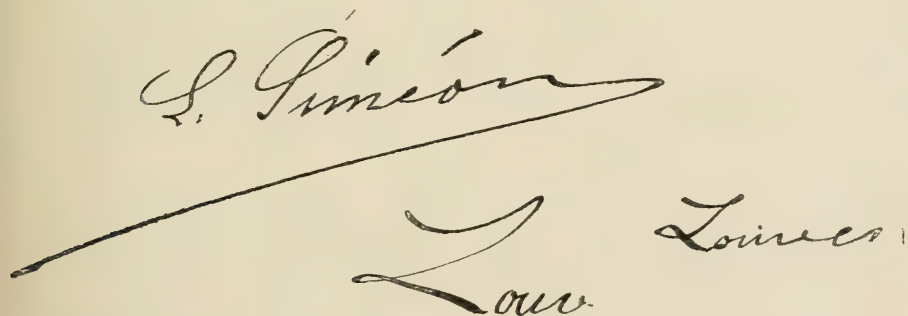 S. Siméon
Louves
Louv.